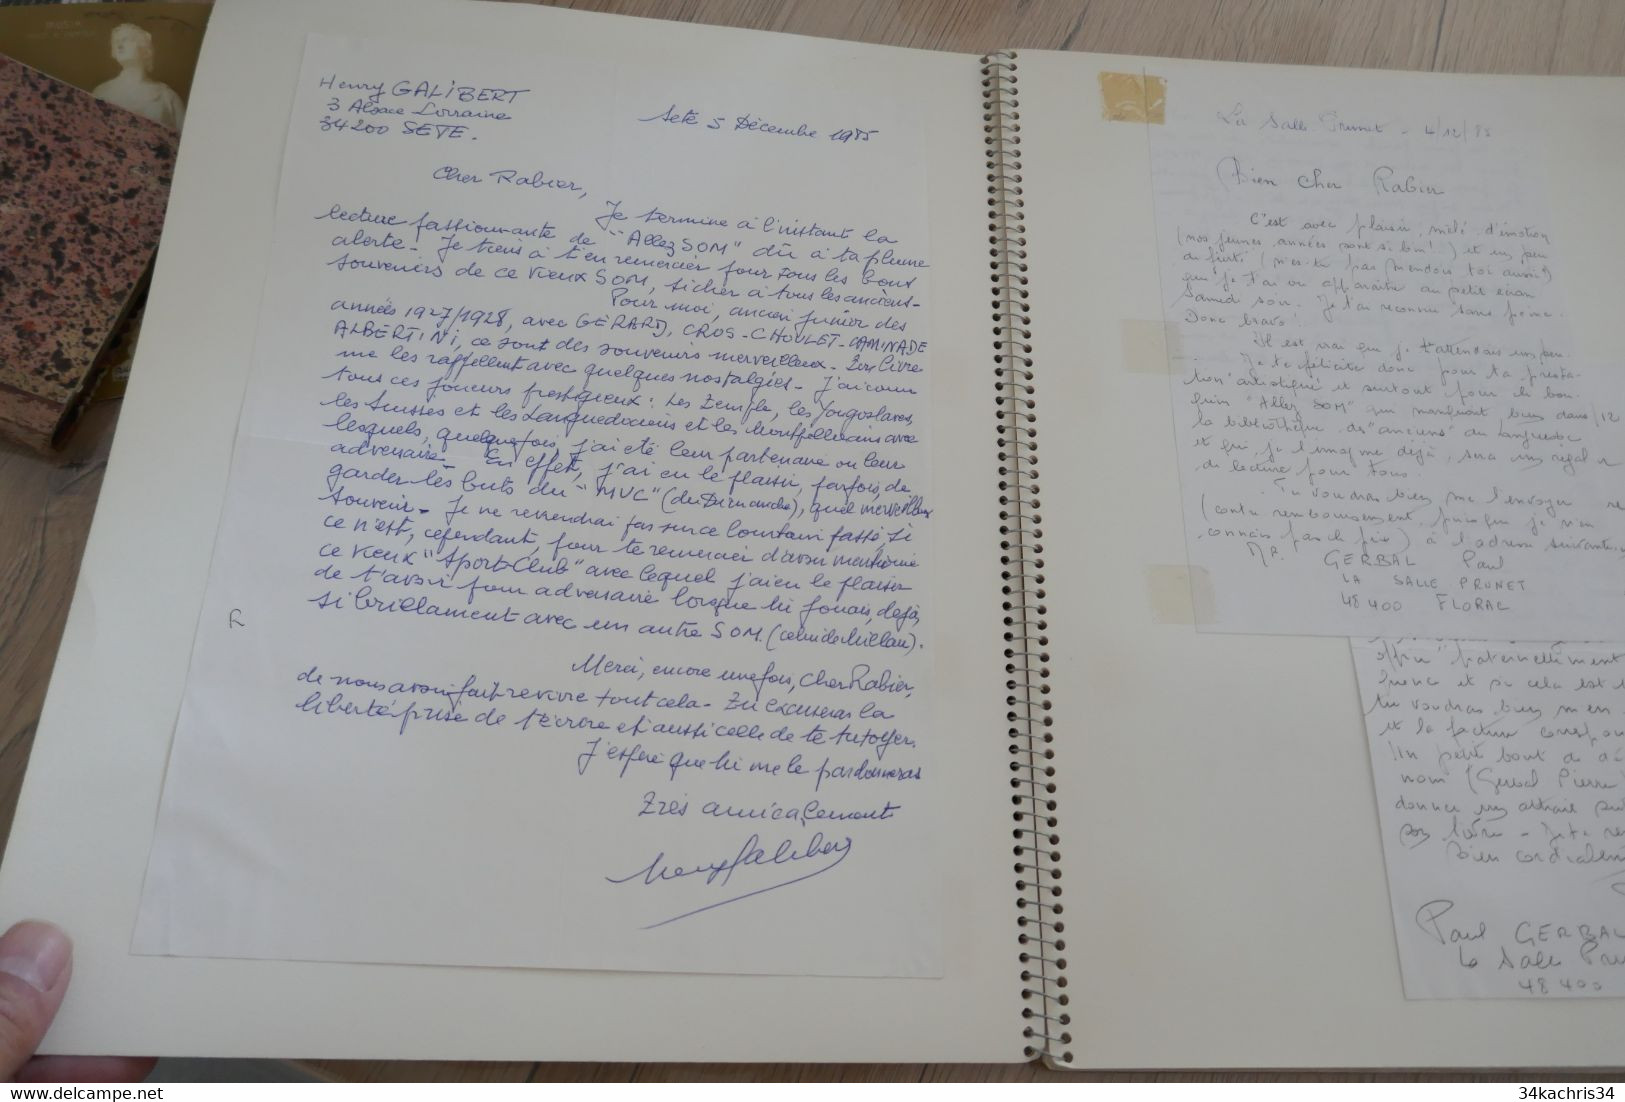 Henry GALIBERT
3 Alsace Lorraine
34200 SETE.
Sete 5 Décembre 1985
Cher Rabier,
Je termine à l'instant la
lecture passionnante de "Allez SOM" dû à ta plume
alerte - Je tiens à t'en remercier pour tous les bons
souvenirs de ce vieux SOM, si cher à tous les anciens -
Pour moi, ancien junior des
années 1927/1928, avec GÉRARD, CROS - CHOULET - CAMINADE
ALBERTINI, ce sont des souvenirs merveilleux - Ton livre
me les rappellent avec quelques nostalgies - J'ai connu
tous ces joueurs prestigieux : Les Temple, les Yougoslaves,
les Suisses et les Languedociens et les Montpelliérains avec
lesquels, quelquefois, j'ai été leur partenaire ou leur
adversaire - En effet, j'ai eu le plaisir, parfois, de
garder les buts du "MUC" (du Dimanche), quel merveilleux
souvenir - Je ne reviendrai pas sur ce lointain passé si
ce n'est, cependant, pour te remercier d'avoir mentionné
ce vieux "Sport-Club" avec lequel j'ai eu le plaisir
de t'avoir pour adversaire lorsque tu jouais, déjà,
si brillament avec un autre SOM. (celui de Millau).
R
Merci, encore une fois, Cher Rabier,
de nous avoir fait revivre tout cela - Tu excuseras la
liberté prise de t'écrire et aussi celle de te tutoyer.
J'espère que tu me le pardonneras
Très amicalement
Henry Galibert
La Salle Prunet - 4/12/85
Bien Cher Rabier
C'est avec plaisir, mêlé d'émotion
(nos jeunes années sont si loin !..) et un peu
de fierté (n'es-tu pas Mendois toi aussi ?)
que je t'ai vu apparaître au petit écran
Samedi soir. Je t'ai reconnu sans peine.
Donc bravo !
Il est vrai que je t'attendais un peu.
Je te félicite donc pour ta presta-
tion artistique et surtout pour le bou-
quin "Allez SOM" qui manquait bien dans
la bibliothèque des "anciens" du Languedoc
et qui, je l'imagine déjà, sera un régal
de lecture pour tous.
Tu voudras bien me l'envoyer
(contre remboursement, puisque je n'en
connais pas le prix) à l'adresse suivante
Mr. GERBAL Paul
LA SALLE PRUNET
48400 FLORAC
offrir "fraternellement
et si cela est
tu voudras bien m'en
et la facture
Un petit bout de
nom (Gerbal Pierre)
donner un attrait
son livre - Je te
Bien cordialement
Paul GERBAL
La Salle Pru
48400
34kachris34 34kachris34